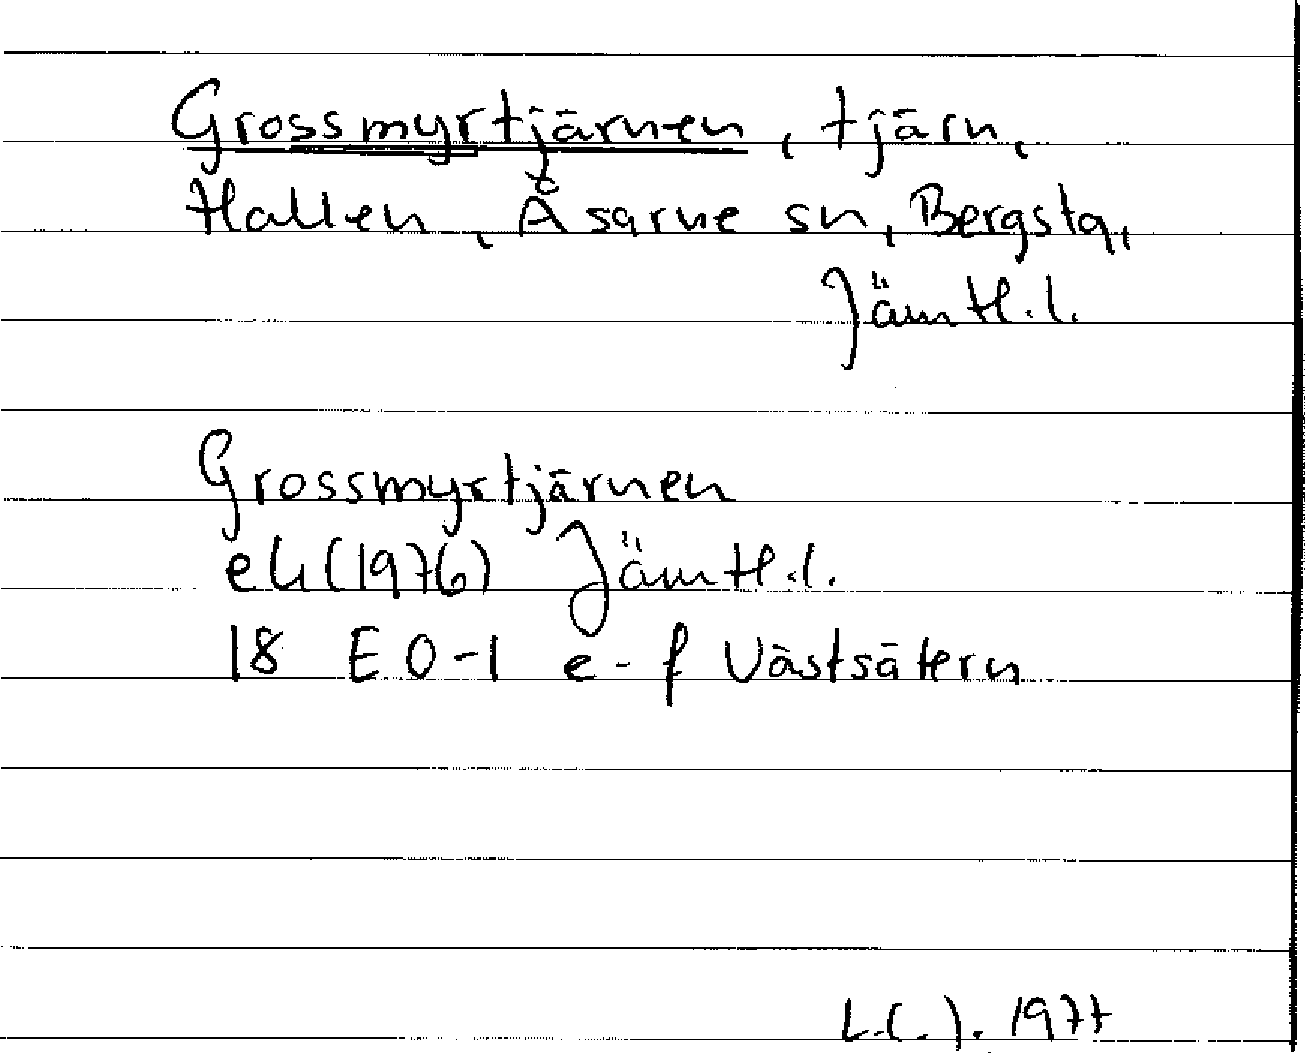 Grossmyrtjärnen, tjärn,
Hallen, Åsarne sn, Bergs tg,
Jämtl. l.
Grossmyrtjärnen
ek (1976) Jämtl. l.
18 E 0-1 e-f Västsätern
1977